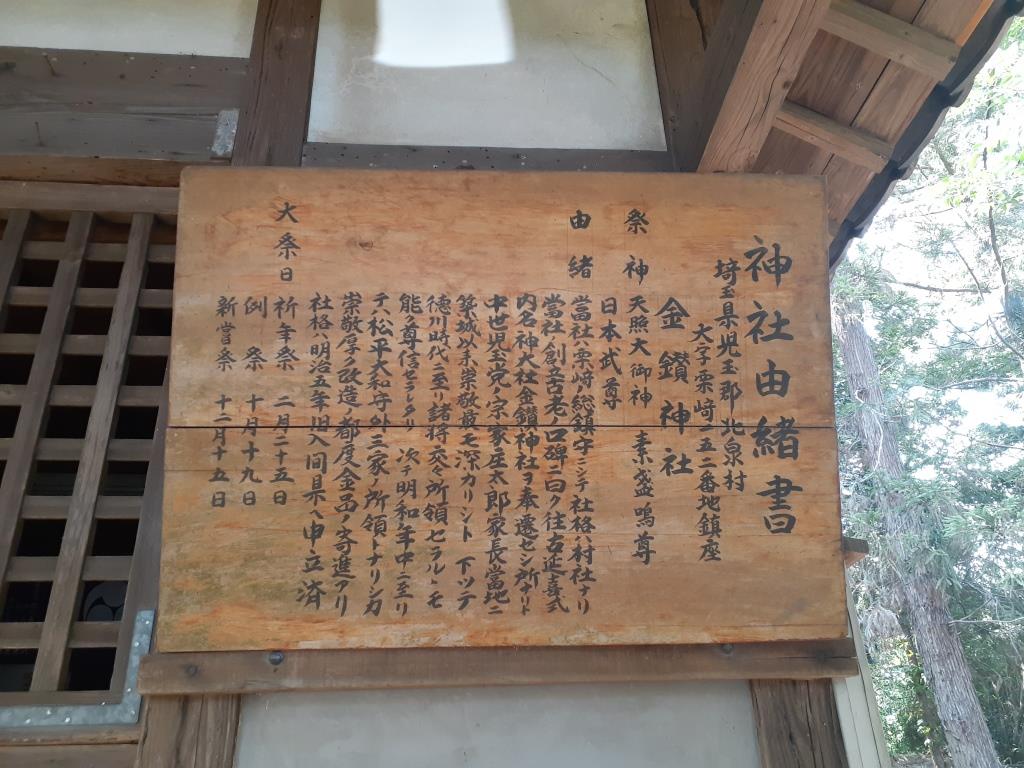 神社由緒書
埼玉県児玉郡北泉村
大字栗崎一五二番地鎮座
金鑚神社
祭神 天照大御神 素盞嗚尊
日本武尊
由緒 當社ハ栗崎ノ総鎮守ニシテ社格ハ村社ナリ
當社ノ創立古老ノ口碑ニ曰ク往古延喜式
内名神大社金鑚神社ヲ奉遷セシ所ナリト
中世児玉党ノ宗家庄太郎家長當地ニ
築城以来崇敬最モ深カリシト 下ツテ
徳川時代ニ至リ諸将交々所領セラルヽモ
能ク尊信セラレタリ 次テ明和年中ニ至リ
テハ松平大和守外三家ノ所領トナリシカ
崇敬厚ク改造ノ都度金品ノ寄進アリ
社格ハ明治五年旧入間県ヘ申立済
大祭日 祈年祭 二月二十五日
例祭 十月十九日
新嘗祭 十二月十五日